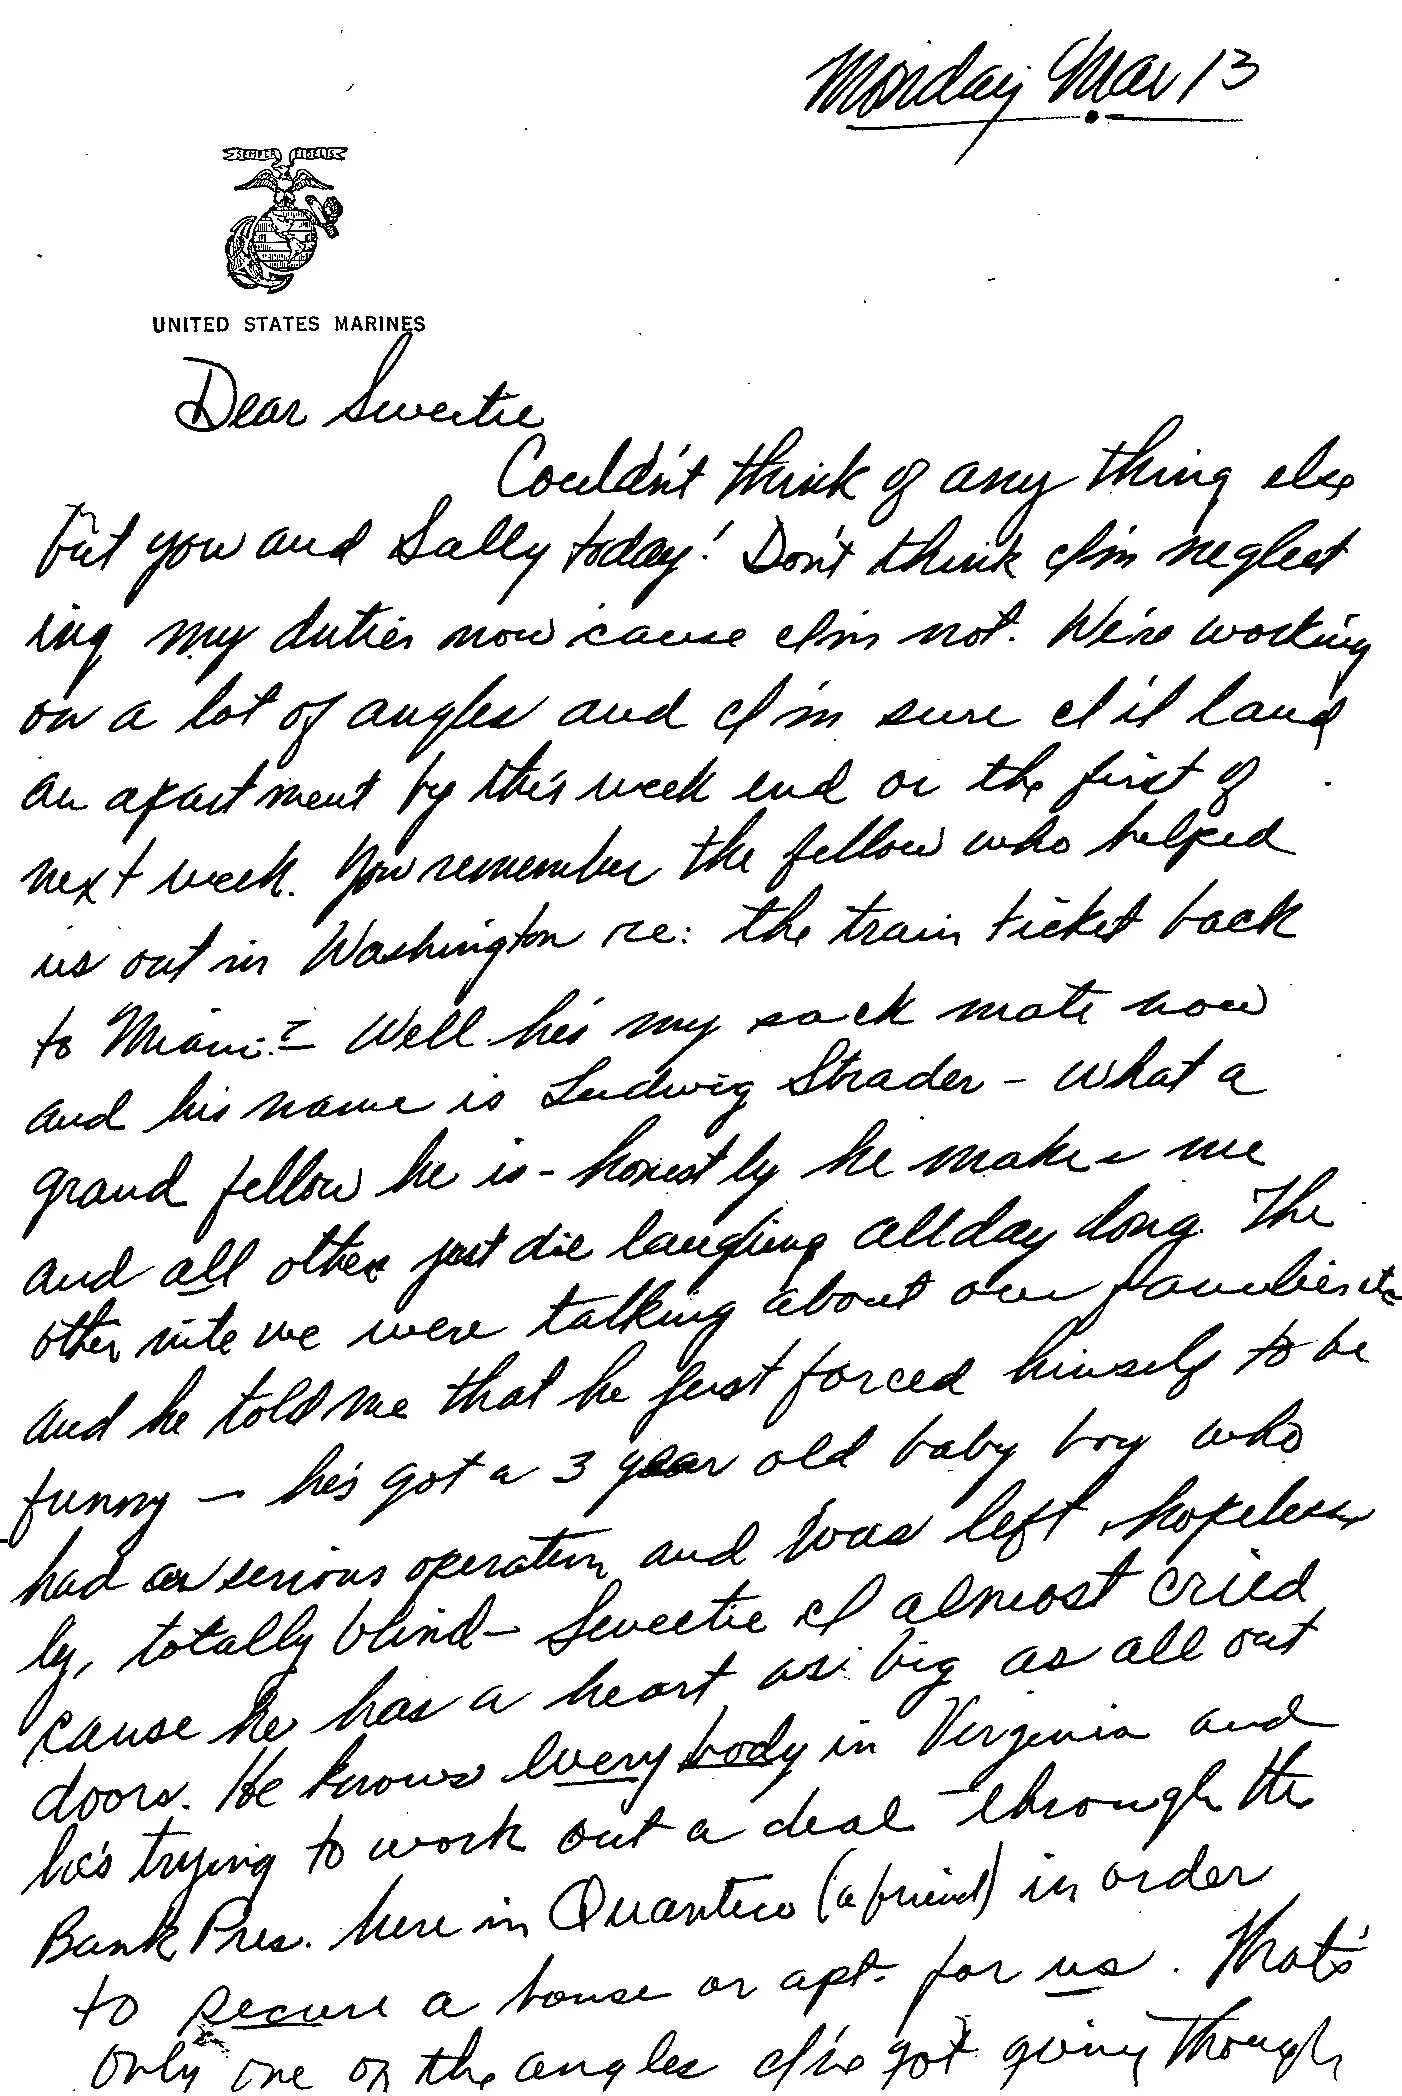 Monday Mar 13
SEMPER FIDELIS
UNITED STATES MARINES
Dear Sweetie
Couldn't think of any thing else
but you and Sally today! Don't think I'm neglect
ing my duties now 'cause I'm not. We're working
on a lot of angles and I'm sure I'll land
an apartment by this week end or the first of
next week. You remember the fellow who helped
us out in Washington re: the train ticket back
to Miami? - Well he's my sack mate now
and his name is Ludwig Strader - what a
grand fellow he is - honestly he makes me
and all others just die laughing all day long. The
other nite we were talking about our families etc
and he told me that he just forced himself to be
funny - he's got a 3 year old baby boy who
had a serious operation and was left hopeless
ly, totally blind - Sweetie I almost cried
cause he has a heart as big as all out
doors. He knows everybody in Virginia and
he's trying to work out a deal through the
Bank Pres. here in Quantico (a friend) in order
to secure a house or apt. for us. That's
only one of the angles I've got going though